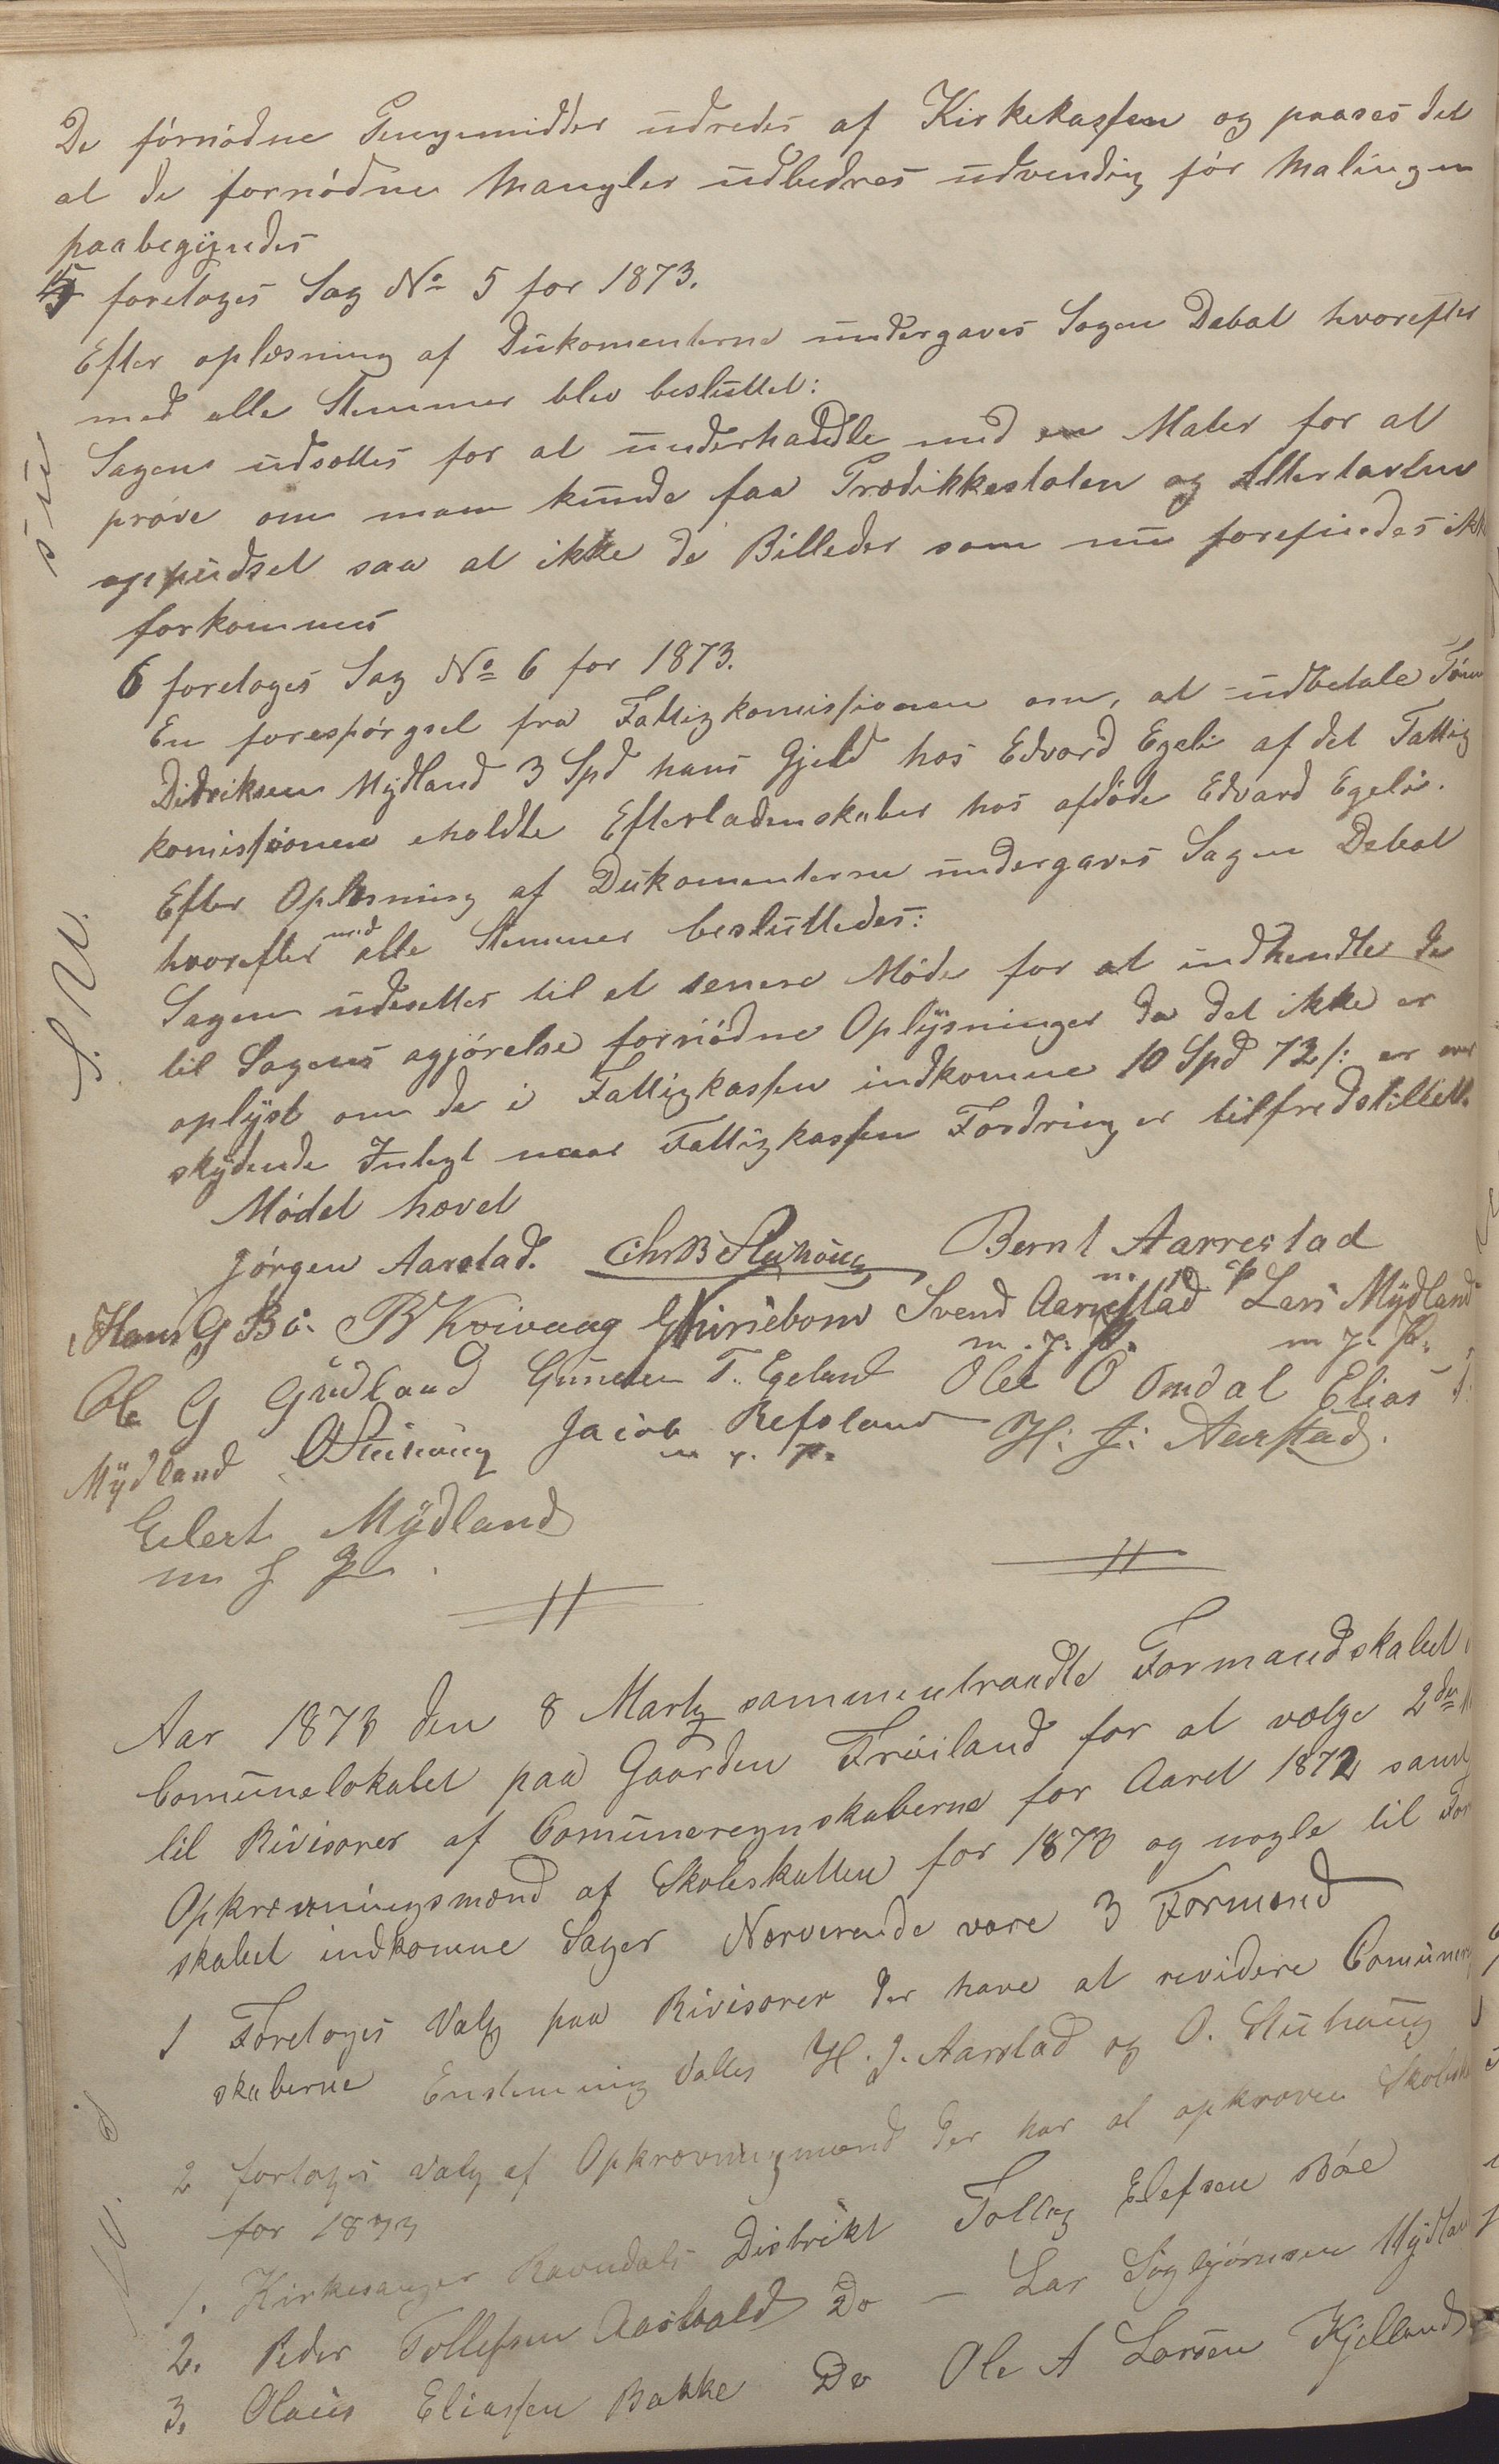 De fórnódne Pengemidder udredes af Kirkekassen og paasees det
at de fornódne Mangler udbedres udvendig fór Malingen
paabegyndes
5 foretoges Sag No 5 for 1873.
Efter oplæsning af Dukomenterne undergaves Sagen Debat hvorefter
med alle Stemmer blev besluttet:
Sagens udsættes for at underhandle med en Maler for at
próve om man kunde faa Prædikkestolen og Altertavlen
oppudset saa at ikke de Billeder som nu forefindes ikke
forkommes
6 foretoges Sag No 6 for 1873.
En forespórgsel fra Fattigkomissionen om, at udbetale Tónn
Didriksen Mydland 3 Spd hans Gjeld hos Edvard Egeli af det Fattig
komissionen eholdte Efterladenskaber hos afdóde Edvard Egeli.
Efter Oplæsning af Dukomenterne undergaves Sagen Debat
hvorefter med alle Stemmer besluttedes:
Sagen udsettes til et senere Móde for at indhendte de
til Sagens agjórelse fornódne Oplysninger da det ikke er
oplyst om de i Fattigkassen indkomne 10 Spd 72/: er over
skydende Integt naar Fattigkassen Fordring er tilfredstillett.
Módet hævet
Jórgen Aarstad. Chr B Stuhoug Bernt Aarrestad
Hans G Bó. B Kvivaag Svend Aarrestad Lars Mydland
m. p. P. m p. P.
Ole G Gudland Gunder T. Egeland Ole O Omdal Elias
Mydland O Stuhoug Jacob Refsland H: J: Aarstad.
m. p. p.
Eilert Mydland
m f P.
Aar 1873 den 8 Marty sammentraadte Formandskabet
Comunelokalet paa Gaarden Frøiland for at vælge 2de
til Rivisorer af Comuneregnskaberne for Aaret 1872 samt
Opkrævningsmænd af Skoleskatten for 1873 og nogle til For
skabet indkomne Sager Nærverende vare 3 Formænd
1 Foretoges Valg paa Rivisorer der have at revidere Comunere
skaberne Enstemmig Valtes H. J. Aarstad og O. Stuhoug
2 fortoges Valg af Opkrævningmænd der har at opkræven Skolesk
for 1873
1. Kirkesanger Ravndals Distrikt Tolleg Elefsen Bóe
2. Peder Tollefsen Aasvald Do — Lar Sigbjórnsen Mydlan
3. Olaus Eliassen Bakke Do Ole A Larsen Kjelland
S. U.